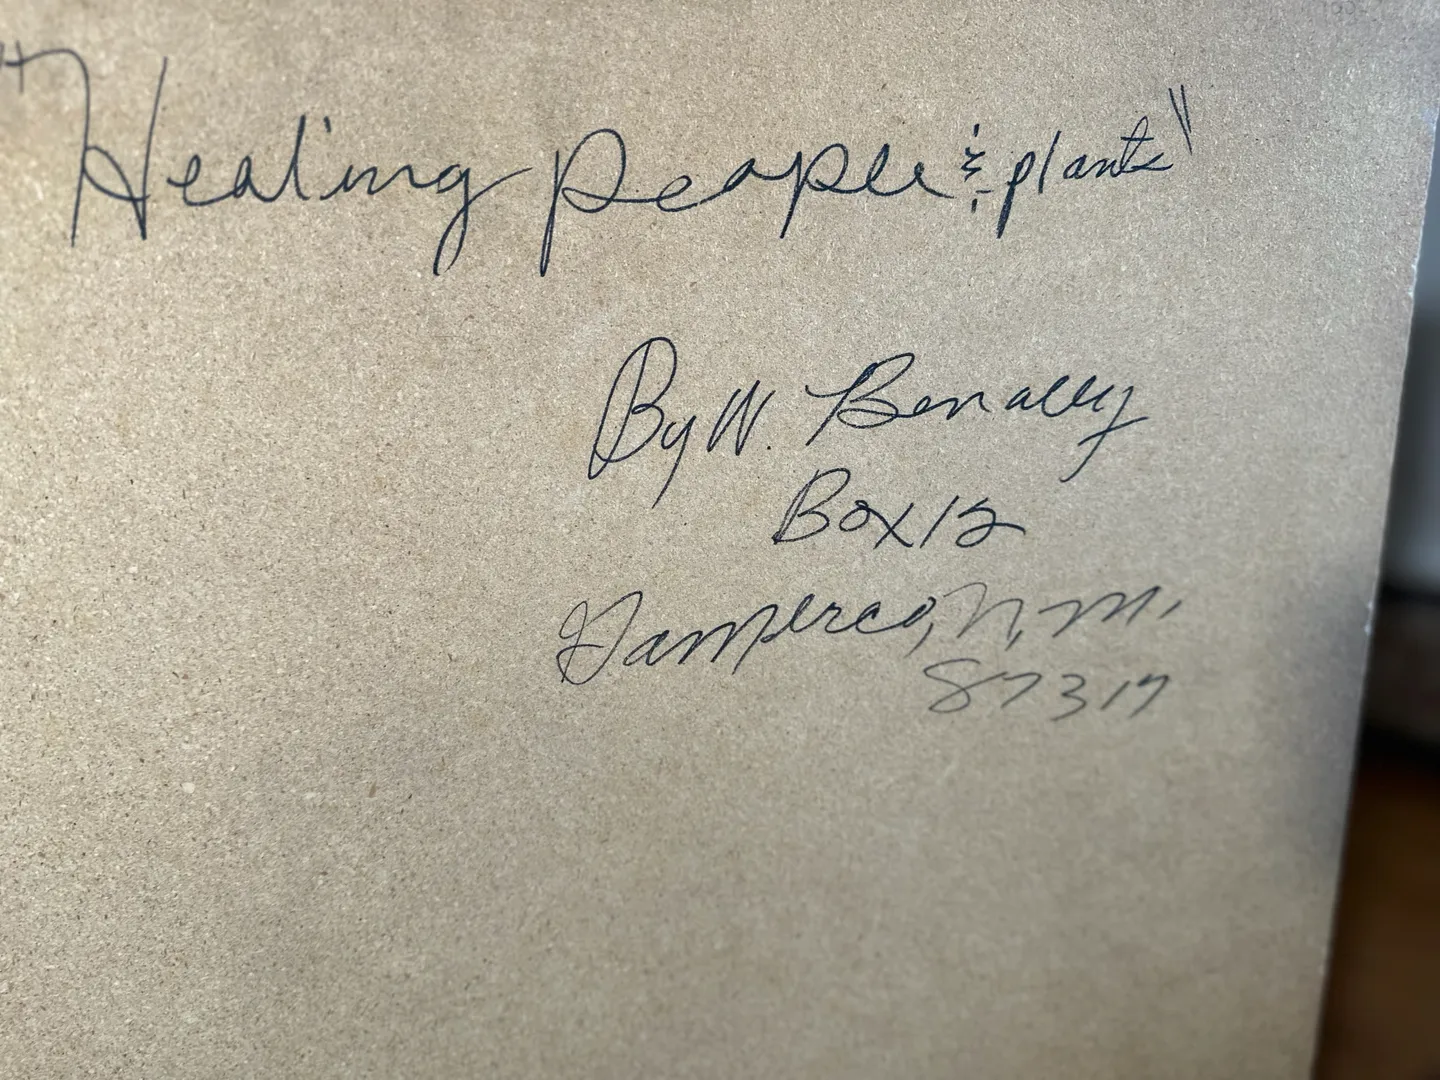 "Healing people & plants"
By W. Benally
Box 12
Gamerco, N.M.
87317